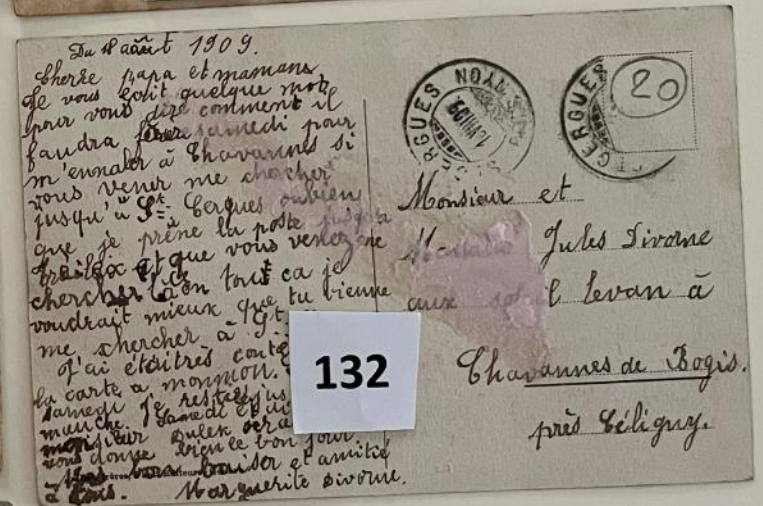 Du 18 août 1909.
Cherre papa et mamans
Je vous écrit quelque mots
pour vous dire comment il
faudra fere samedi pour
m'ennaler à Chavannes si
vous vener me chercher
jusqu'à St. Cergues oubien
que je prêne la poste jusqua
et que vous venez me
chercher en tout ca je
voudrait mieux que tu vienne
me chercher à St.
J'ai étaitrès conte
la carte a monmon.
samedi je reste jus
manche. samedi et di
monsieur
vous donne bien le bon jour
baiser et amitié
à tous. Marguerite Divorne.
132
ST CERGUES NYON
18 VIII 09
ST CERGUES
20
Monsieur et
Madame Jules Divorne
aux soleil levan à
Chavannes de Bogis.
près Céligny.